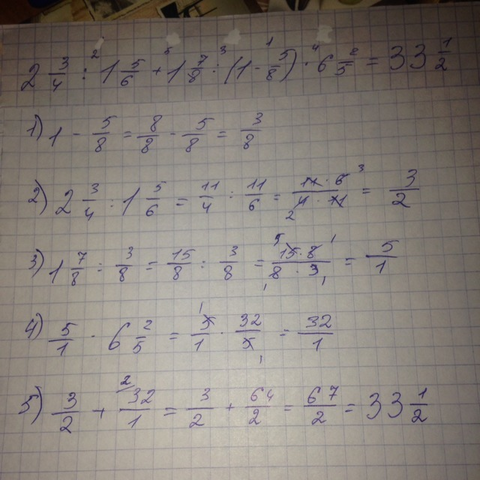 2 3/4 : 1 5/6 + 1 7/8 : (1 - 5/8) · 6 2/5 = 33 1/2
1) 1 - 5/8 = 8/8 - 5/8 = 3/8
2) 2 3/4 : 1 5/6 = 11/4 : 11/6 = 11·6/4·11 = 3/2
3) 1 7/8 : 3/8 = 15/8 : 3/8 = 15·8/8·3 = 5/1
4) 5/1 · 6 2/5 = 5/1 · 32/5 = 32/1
5) 3/2 + 32/1 = 3/2 + 64/2 = 67/2 = 33 1/2